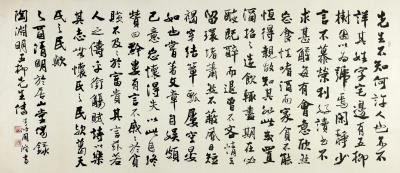 先生不知何許人也亦不
詳其姓字宅邊有五柳
樹因以為號焉閒靜少
言不慕榮利好讀書不
求甚解每有會意欣然
忘食性嗜酒而家貧不能
恒得親故知其如此或置
酒招之造飲輒盡期在必
醉既醉而退曾不吝情去
留環堵蕭然不蔽風日短
褐穿結簞瓢屢空晏
如也嘗著文章自娛頗
示己志忘懷得失以此自終
贊曰黔婁有言不戚戚於貧
賤不汲汲於富貴其言茲若
人之儔乎銜觴賦詩以樂
其志無懷氏之民歟葛天
氏之民歟
乙酉清明於居山堂偶錄
陶淵明五柳先生傳